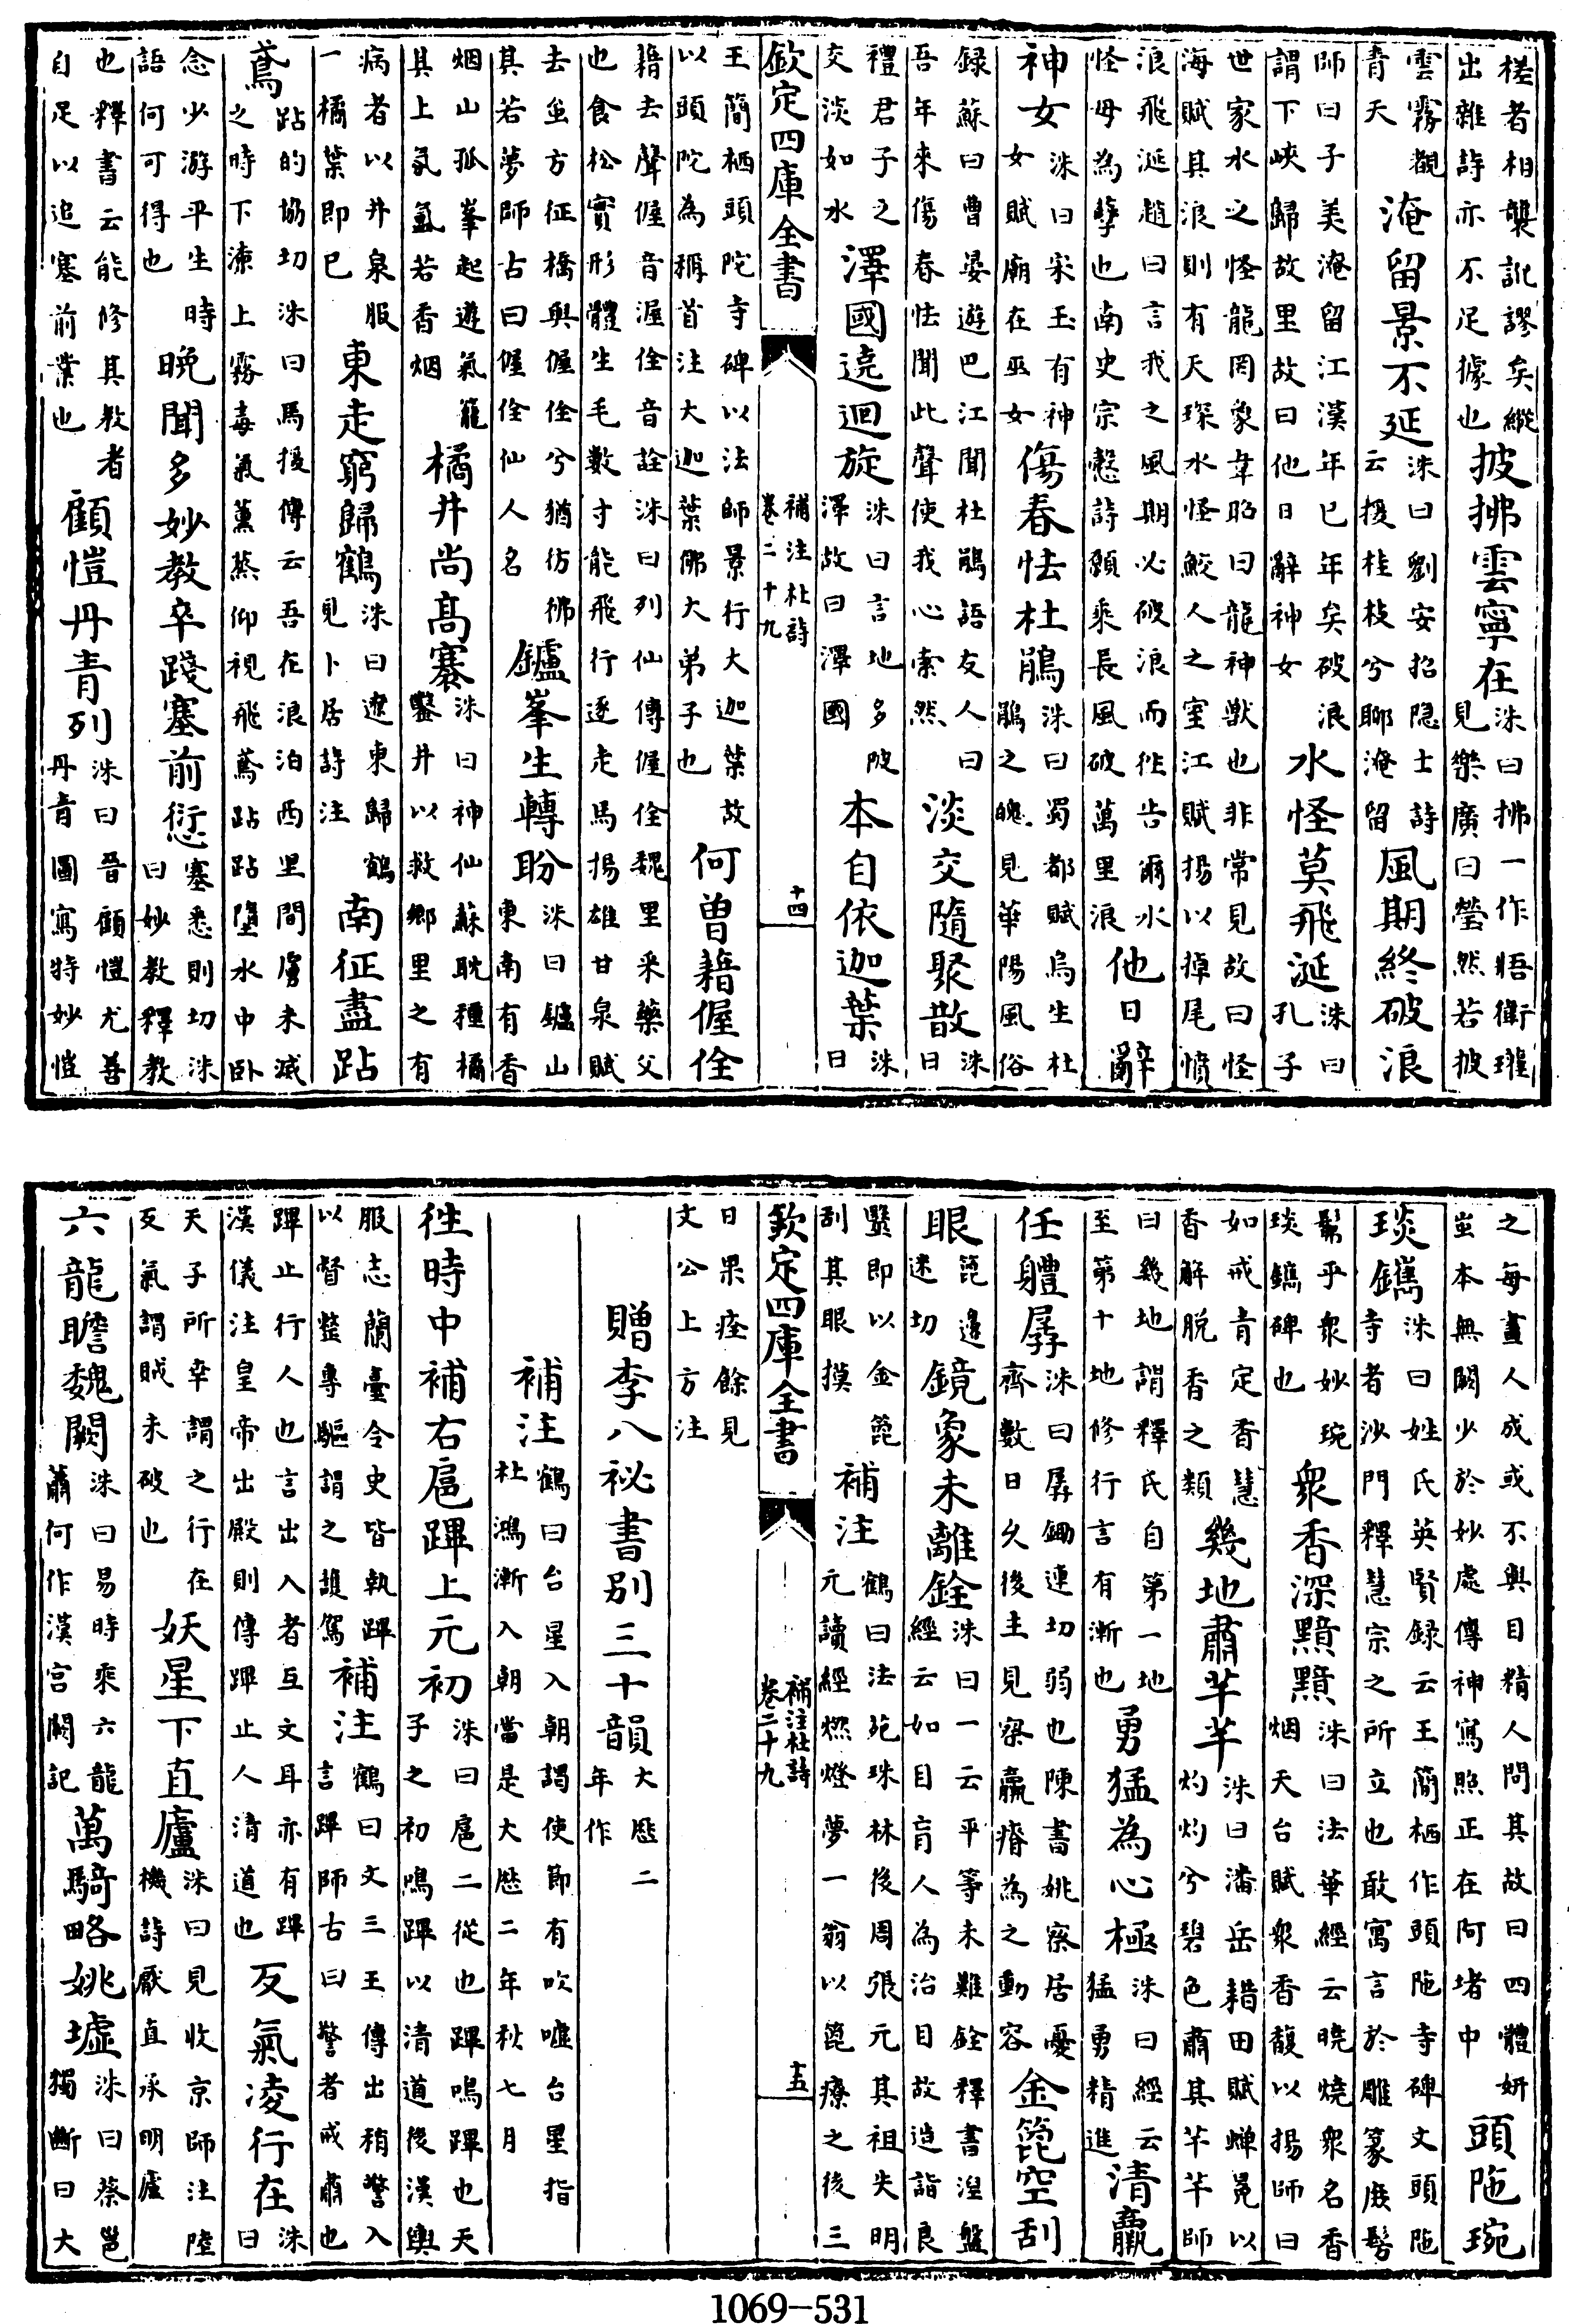 槎者相襲訛謬矣縱出雜詩亦不足據也披拂雲寧在洙曰拂一作晤衛瓘見樂廣曰瑩然若披
雲霧覩青天淹留景不延洙曰劉安招隐士詩云援桂枝兮聊淹留風期終破浪
師曰子美淹留江漢年已年矣破浪謂下峽歸故里故曰他日辭神女水怪莫飛涎洙曰孔子
世家水之怪龍罔象韋昭曰龍神獸也非常見故曰怪海賦其浪則有天琛水怪鮫人之室江賦揚以掉尾噴
浪飛涎趙曰言我之風期必破浪而徃告爾水怪毋為孽也南史宗慤詩願乘長風破萬里浪他日辭
神女洙曰宋玉有神女賦廟在巫女傷春怯杜鵑洙曰蜀都賦烏生杜鵑之魄見華陽風俗
録蘇曰曹晏遊巴江聞杜鵑語友人曰吾年來傷春怯聞此聲使我心索然淡交隨聚散洙曰
禮君子之交淡如水澤國遶迴旋洙曰言地多陂澤故曰澤國本自依迦葉洙曰
欽定四庫全書 補注杜詩卷二十九 十四
王簡栖頭陀寺碑以法師景行大迦葉故以頭陀為稱首注大迦葉佛大弟子也何曾藉偓佺
籍去聲偓音渥佺音詮洙曰列仙傳偓佺魏里采藥父也食松實形體生毛數寸能飛行逐走馬揚雄甘泉賦
去虽方征橋與偓佺兮猶彷彿其若夢師古曰偓佺仙人名鑪峯生轉盼洙曰鑪山東南有香
烟山孤峯起遊氣籠其上氣氳若香烟橘井尚高褰洙曰神仙蘇耽種橘鑿井以救鄉里之有
病者以井泉服一橘葉即已東走窮歸鶴洙曰遼東歸鶴見卜居詩注南征盡跕
鳶跕的協切洙曰馬援傳云吾在浪泊西里間虜未滅之時下潦上霧毒氣薰蒸仰視飛鳶跕跕墮水中卧
念少游平生時語何可得也晚聞多妙教卒踐塞前愆塞悉則切洙曰妙教釋教
也釋書云能修其教者自足以追塞前業也顧愷丹青列洙曰晉顧愷尤善丹青圖寫特妙愷
之每畫人成或不與目精人問其故曰四體妍蚩本無闕少於妙處傳神寫照正在阿堵中頭陁琬
琰鐫洙曰姓氏英賢録云王簡栖作頭陁寺碑文頭陁寺者沙門釋慧宗之所立也敢寓言於雕篆庻髣
髴乎衆妙琬琰鐫碑也衆香深黯黯洙曰法華經云曉燒衆名香烟天台賦衆香馥以揚師曰
如戒青定香慧香解脱香之類幾地肅芊芊洙曰潘岳耤田賦蟬冕以灼灼兮碧色肅其芊芊師
曰幾地謂釋氏自第一地至第十地修行言有漸也勇猛為心極洙曰經云猛勇精進清羸
任體孱洙曰孱鋤連切弱也陳書姚察居憂齊數日久後主見察羸瘠為之動容金篦空刮
眼篦邊迷切鏡象未離銓洙曰一云平等未難銓釋書湼盤經云如目盲人為治目故造詣良
毉即以金篦刮其眼摸補注鶴曰法苑珠林後周張元其祖失明元讀經燃燈夢一翁以篦療之後三
欽定四庫全書 補注杜詩卷二十九 十五
日果痊餘見文公上方注
贈李八祕書别三十韻大厯二年作
補注鶴曰台星入朝謁使節有吹噓台星指杜鴻漸入朝當是大厯二年秋七月
徃時中補右扈蹕上元初洙曰扈二從也蹕鳴蹕也天子之初鳴蹕以清道後漢輿
服志蘭臺令史皆執蹕以督整專驅謂之護駕補注鶴曰文三王傳出稍警入言蹕師古曰警者戒肅也
蹕止行人也言出入者互文耳亦有蹕漢儀注皇帝出殿則傳蹕止人清道也反氣凌行在洙曰
天子所幸謂之行在反氣謂賊未破也妖星下直廬洙曰見收京師注陸機詩厭直承明廬
六龍瞻魏闕洙曰易時乘六龍蕭何作漢宫闕記萬騎略姚墟洙曰蔡邕獨斷曰大
1069—531